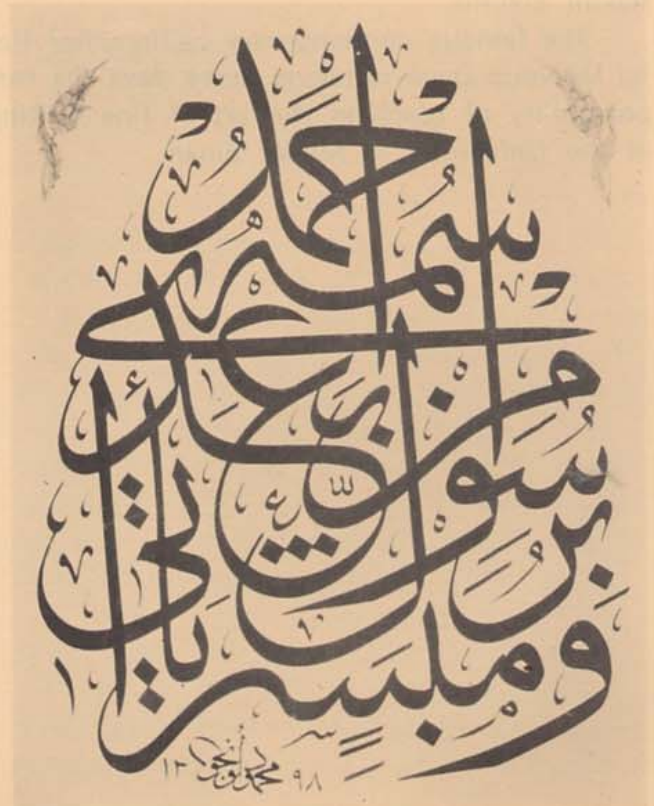 ومبشرا برسول يأتي من بعدي اسمه أحمد
محمد أونجو ١٣٩٨